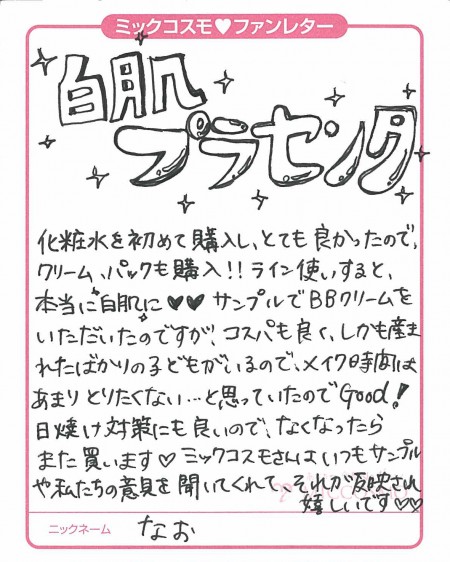 ミックコスモ♥ファンレター
白肌
プラセンタ
化粧水を初めて購入し、とても良かったので、
クリーム、パックも購入!!ライン使いすると、
本当に白肌に♥♥ サンプルでBBクリームを
いただいたのですが、コスパも良く、しかも産ま
れたばかりの子どもがいるので、メイク時間は
あまりとりたくない…と思っていたのでGood!
日焼け対策にも良いので、なくなったら
また買います♡ミックコスモさんはいつもサンプル
や私たちの意見を聞いてくれて、それが反映され
嬉しいです♡♡
ニックネーム なお